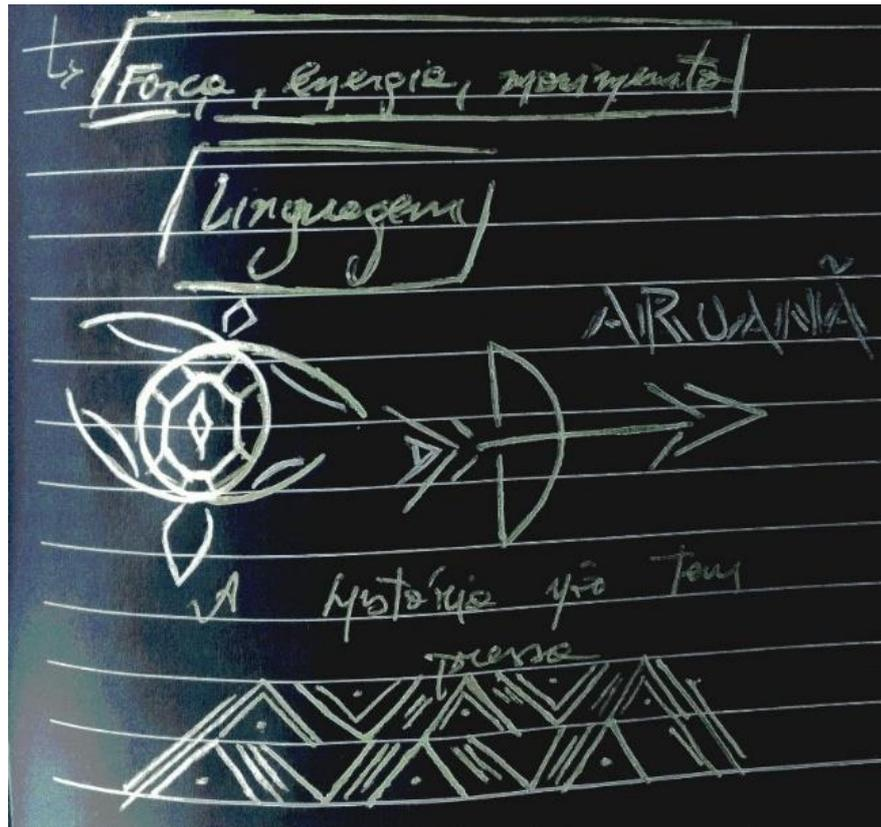 Força, energia, movimento
Linguagem
ARUANÃ
A história não tem
pressa